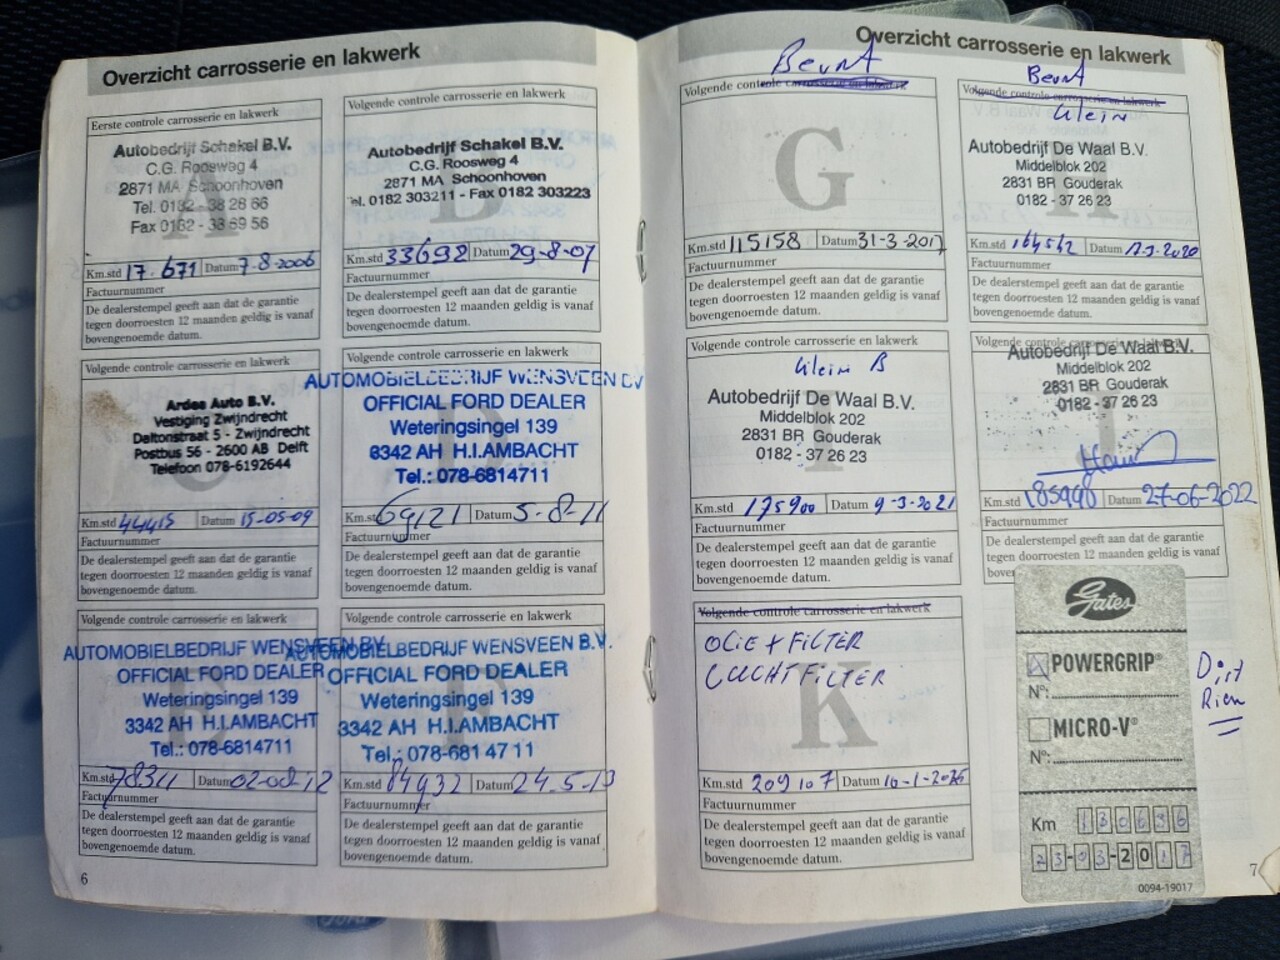 Overzicht carrosserie en lakwerk
Eerste controle carrosserie en lakwerk
Autobedrijf Schakel B.V.
C.G. Roosweg 4
2871 MA Schoonhoven
Tel. 0182 - 38 28 66
Fax 0182 - 38 69 56
Km.std 17.671 Datum 7-8-2006
Factuurnummer
De dealerstempel geeft aan dat de garantie
tegen doorroesten 12 maanden geldig is vanaf
bovengenoemde datum.
Volgende controle carrosserie en lakwerk
Autobedrijf Schakel B.V.
C.G. Roosweg 4
2871 MA Schoonhoven
Tel. 0182 303211 - Fax 0182 303223
Km.std 33698 Datum 29-8-07
Factuurnummer
De dealerstempel geeft aan dat de garantie
tegen doorroesten 12 maanden geldig is vanaf
bovengenoemde datum.
Volgende controle carrosserie en lakwerk
Ardea Auto B.V.
Vestiging Zwijndrecht
Daltonstraat 5 - Zwijndrecht
Postbus 56 - 2600 AB Delft
Telefoon 078-6192644
Km.std 44415 Datum 15-05-09
Factuurnummer
De dealerstempel geeft aan dat de garantie
tegen doorroesten 12 maanden geldig is vanaf
bovengenoemde datum.
Volgende controle carrosserie en lakwerk
AUTOMOBIELBEDRIJF WENSVEEN BV
OFFICIAL FORD DEALER
Weteringsingel 139
3342 AH H.I.AMBACHT
Tel.: 078-6814711
Km.std 69121 Datum 5-8-11
Factuurnummer
De dealerstempel geeft aan dat de garantie
tegen doorroesten 12 maanden geldig is vanaf
bovengenoemde datum.
Volgende controle carrosserie en lakwerk
AUTOMOBIELBEDRIJF WENSVEEN BV
OFFICIAL FORD DEALER
Weteringsingel 139
3342 AH H.I.AMBACHT
Tel.: 078-6814711
Km.std 78311 Datum
Factuurnummer
De dealerstempel geeft aan dat de garantie
tegen doorroesten 12 maanden geldig is vanaf
bovengenoemde datum.
Volgende controle carrosserie en lakwerk
AUTOMOBIELBEDRIJF WENSVEEN B.V.
OFFICIAL FORD DEALER
Weteringsingel 139
3342 AH H.I.AMBACHT
Tel.: 078-681 47 11
Km.std 84932 Datum 24-5-13
Factuurnummer
De dealerstempel geeft aan dat de garantie
tegen doorroesten 12 maanden geldig is vanaf
bovengenoemde datum.
6
Overzicht carrosserie en lakwerk
Beurt
Volgende controle carrosserie en lakwerk
G
Km.std 115158 Datum 31-3-2017
Factuurnummer
De dealerstempel geeft aan dat de garantie
tegen doorroesten 12 maanden geldig is vanaf
bovengenoemde datum.
Beurt
Volgende controle carrosserie en lakwerk
Klein
Autobedrijf De Waal B.V.
Middelblok 202
2831 BR Gouderak
0182 - 37 26 23
Km.std 164542 Datum
Factuurnummer
De dealerstempel geeft aan dat de garantie
tegen doorroesten 12 maanden geldig is vanaf
bovengenoemde datum.
Volgende controle carrosserie en lakwerk
Klein B
Autobedrijf De Waal B.V.
Middelblok 202
2831 BR Gouderak
0182 - 37 26 23
Km.std 175900 Datum 9-3-2021
Factuurnummer
De dealerstempel geeft aan dat de garantie
tegen doorroesten 12 maanden geldig is vanaf
bovengenoemde datum.
Volgende controle carrosserie en lakwerk
Autobedrijf De Waal B.V.
Middelblok 202
2831 BR Gouderak
0182 - 37 26 23
Km.std 185990 Datum 27-06-2022
Factuurnummer
De dealerstempel geeft aan dat de garantie
tegen doorroesten 12 maanden geldig is vanaf
Volgende controle carrosserie en lakwerk
OLIE + FILTER
LUCHTFILTER
K
Km.std 209107 Datum
Factuurnummer
De dealerstempel geeft aan dat de garantie
tegen doorroesten 12 maanden geldig is vanaf
bovengenoemde datum.
Gates
POWERGRIP®
N°:
MICRO-V®
N°:
Km 130696
23-03-2017
0094-19017
Dist
Riem
7